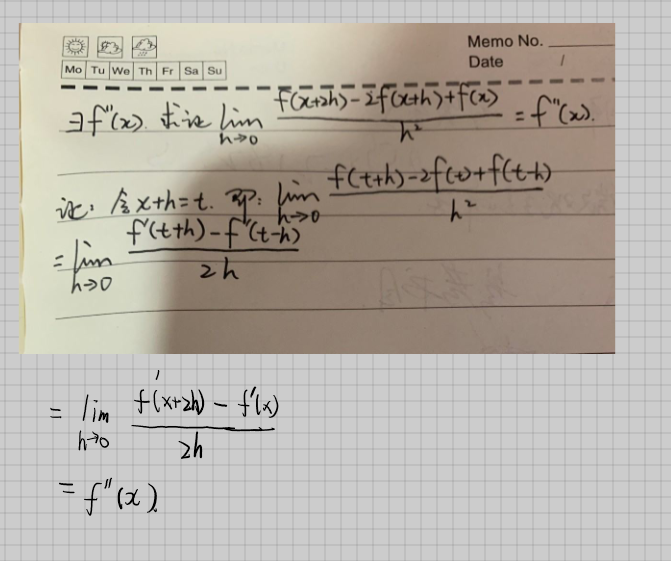 Memo No.
Date /
Mo Tu We Th Fr Sa Su
∃f''(x). 求证 lim h→0 f(x+2h)-2f(x+h)+f(x) / h² = f''(x).
证: 令x+h=t. 即: lim h→0 f(t+h)-2f(t)+f(t-h) / h²
= lim h→0 f'(t+h)-f'(t-h) / 2h
= lim h→0 f'(x+2h)-f'(x) / 2h
= f''(x).